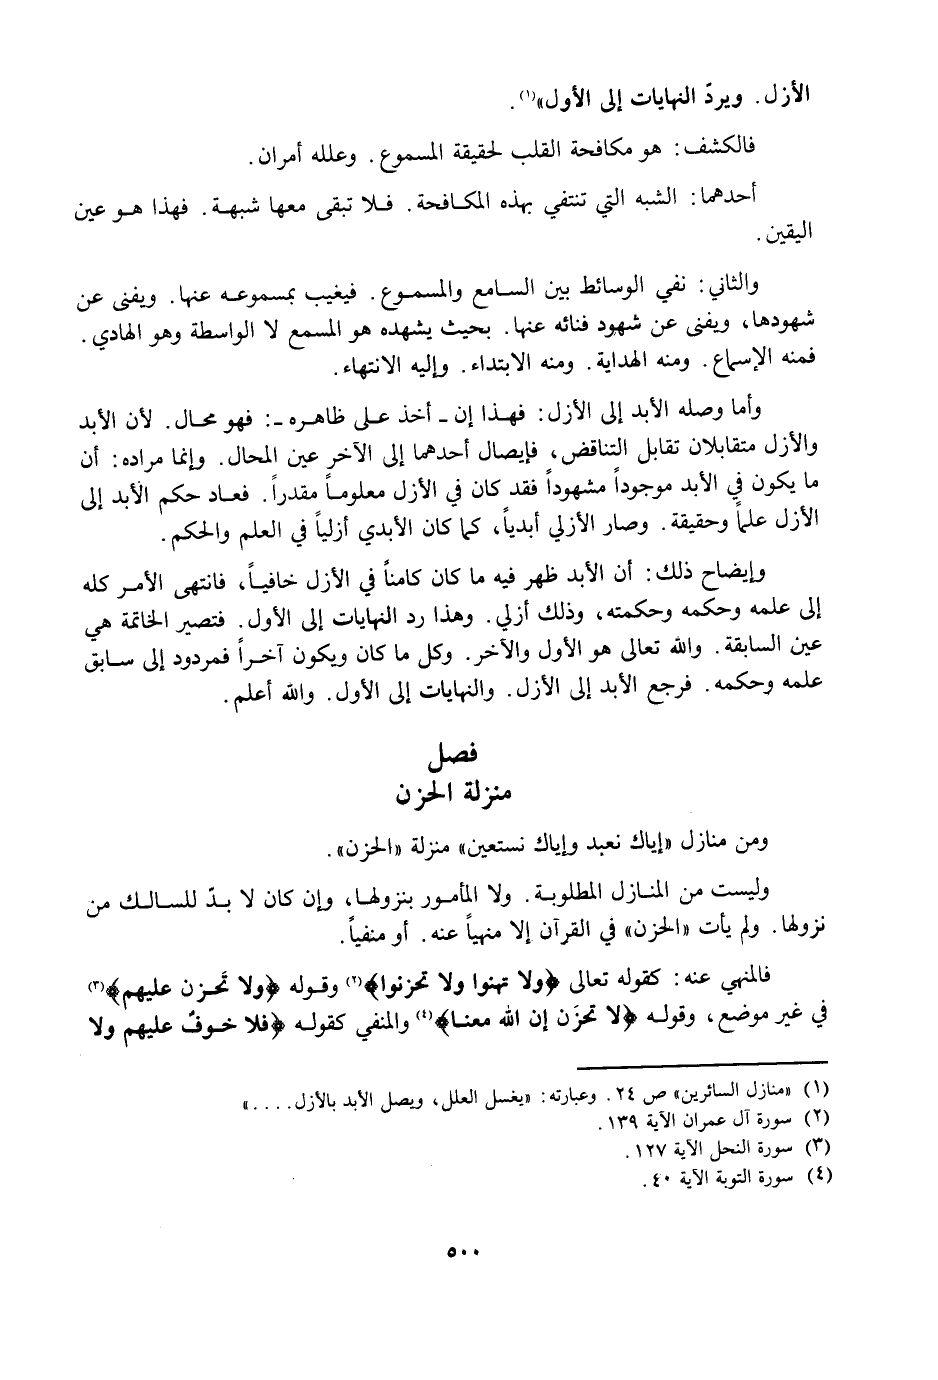 الأزل. ويردّ النهايات إلى الأول»(١).
فالكشف: هو مكافحة القلب لحقيقة المسموع. وعلله أمران.
أحدهما: الشبه التي تنتفي بهذه المكافحة. فلا تبقى معها شبهة. فهذا هو عين
اليقين.
والثاني: نفي الوسائط بين السامع والمسموع. فيغيب بمسموعه عنها. ويفنى عن
شهودها، ويفنى عن شهود فنائه عنها. بحيث يشهده هو المسمع لا الواسطة وهو الهادي.
فمنه الإسماع. ومنه الهداية. ومنه الابتداء. وإليه الانتهاء.
وأما وصله الأبد إلى الأزل: فهذا إن ـ أخذ على ظاهره ـ: فهو محال. لأن الأبد
والأزل متقابلان تقابل التناقض، فإيصال أحدهما إلى الآخر عين المحال. وإنما مراده: أن
ما يكون في الأبد موجوداً مشهوداً فقد كان في الأزل معلوماً مقدراً. فعاد حكم الأبد إلى
الأزل علماً وحقيقة. وصار الأزلي أبدياً، كما كان الأبدي أزلياً في العلم والحكم.
وإيضاح ذلك: أن الأبد ظهر فيه ما كان كامناً في الأزل خافياً، فانتهى الأمر كله
إلى علمه وحكمه وحكمته، وذلك أزلي. وهذا رد النهايات إلى الأول. فتصير الخاتمة هي
عين السابقة. والله تعالى هو الأول والآخر. وكل ما كان ويكون آخراً فمردود إلى سابق
علمه وحكمه. فرجع الأبد إلى الأزل. والنهايات إلى الأول. والله أعلم.
فصل
منزلة الحزن
ومن منازل «إياك نعبد وإياك نستعين» منزلة «الحزن».
وليست من المنازل المطلوبة. ولا المأمور بنزولها، وإن كان لا بدّ للسالك من
نزولها. ولم يأت «الحزن» في القرآن إلا منهياً عنه. أو منفياً.
فالمنهي عنه: كقوله تعالى ﴿ولا تهنوا ولا تحزنوا﴾(٢) وقوله ﴿ولا تَحزن عليهم﴾(٣)
في غير موضع، وقوله ﴿لا تحزَن إن الله معنا﴾(٤) والمنفي كقوله ﴿فلا خوفٌ عليهم ولا
(١) «منازل السائرين» ص ٢٤. وعبارته: «يغسل العلل، ويصل الأبد بالأزل....»
(٢) سورة آل عمران الآية ١٣٩.
(٣) سورة النحل الآية ١٢٧.
(٤) سورة التوبة الآية ٤٠.
٥٠٠